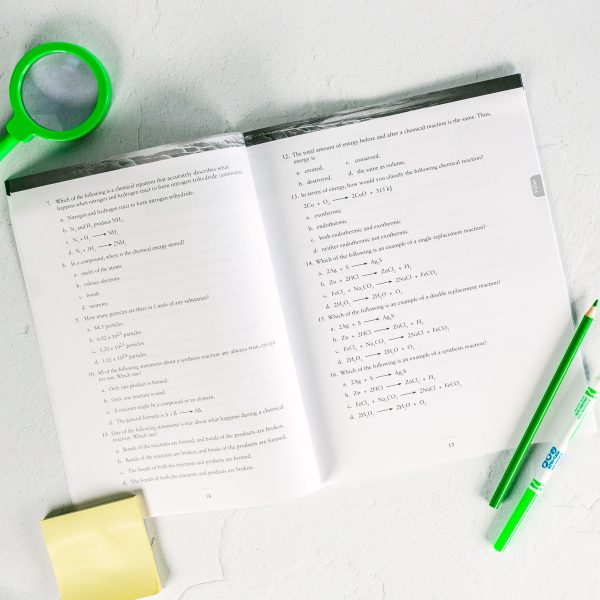 7. Which of the following is a chemical equation that accurately describes what
happens when nitrogen and hydrogen react to form nitrogen trihydride (ammonia)
a. Nitrogen and hydrogen react to form nitrogen trihydride.
b. N₂ and H₂ produce NH₃.
c. N₂ + H₂ ⟶ NH₃
d. N₂ + 3H₂ ⟶ 2NH₃
8. In a compound, where is the chemical energy stored?
a. nuclei of the atoms
b. valence electrons
c. bonds
d. neutrons
9. How many particles are there in 1 mole of any substance?
a. 84.5 particles
b. 6.02 x 10²³ particles
c. 1.20 x 10²³ particles
d. 1.02 x 10²⁴ particles
10. All of the following statements about a synthesis reaction are always true, except
for one. Which one?
a. Only one product is formed.
b. Only one reactant is used.
c. A reactant might be a compound or an element.
d. The general formula is A + B ⟶ AB.
11. One of the following statements is true about what happens during a chemical
reaction. Which one?
a. Bonds of the reactants are formed, and bonds of the products are broken.
b. Bonds of the reactants are broken, and bonds of the products are formed.
c. The bonds of both the reactants and products are formed.
d. The bonds of both the reactants and products are broken.
12. The total amount of energy before and after a chemical reaction is the same. Thus,
energy is
a. created. c. conserved.
b. destroyed. d. the same as volume.
13. In terms of energy, how would you classify the following chemical reaction?
2Cu + O₂ ⟶ 2CuO + 315 kJ
a. exothermic
b. endothermic
c. both endothermic and exothermic
d. neither endothermic nor exothermic
14. Which of the following is an example of a single replacement reaction?
a. 2Ag + S ⟶ Ag₂S
b. Zn + 2HCl ⟶ ZnCl₂ + H₂
c. FeCl₂ + Na₂CO₃ ⟶ 2NaCl + FeCO₃
d. 2H₂O₂ ⟶ 2H₂O + O₂
15. Which of the following is an example of a double replacement reaction?
a. 2Ag + S ⟶ Ag₂S
b. Zn + 2HCl ⟶ ZnCl₂ + H₂
c. FeCl₂ + Na₂CO₃ ⟶ 2NaCl + FeCO₃
d. 2H₂O₂ ⟶ 2H₂O + O₂
16. Which of the following is an example of a synthesis reaction?
a. 2Ag + S ⟶ Ag₂S
b. Zn + 2HCl ⟶ ZnCl₂ + H₂
c. FeCl₂ + Na₂CO₃ ⟶ 2NaCl + FeCO₃
d. 2H₂O₂ ⟶ 2H₂O + O₂
57